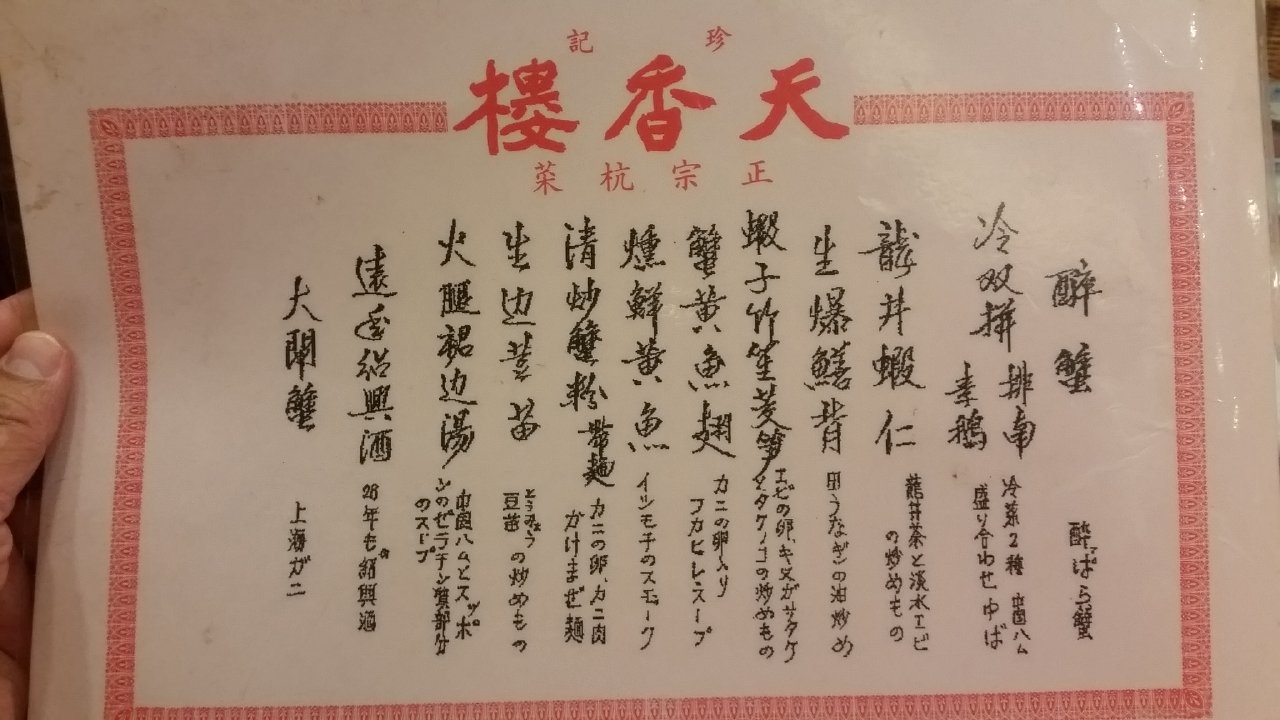 珍記
天香樓
正宗杭菜
醉蟹
酔っぱら蟹
冷双拼
排南
素鵝
冷菜2種 中国ハム
盛り合わせ ゆば
龍井蝦仁
龍井茶と淡水エビ
の炒めもの
生爆鱔背
田うなぎの油炒め
蝦子竹笙茭筍
エビの卵、キヌガサタケ
の炒めもの
蟹黄魚翅
カニの卵入り
フカヒレスープ
燻鮮黄魚
イシモチのスモーク
清炒蟹粉帶麺
カニの卵、カニ肉
がけまぜ麺
生边荳苗
とうみょう
豆苗の炒めもの
火腿裙边湯
中国ハムとスッポ
ンのゼラチン質部分
のスープ
遠年紹興酒
28年もの紹興酒
大閘蟹
上海ガニ